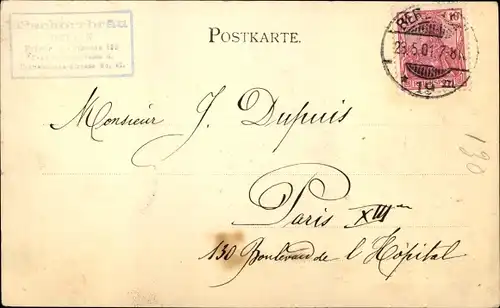 Pschorrbräu
POSTKARTE.
BER
23.5.01.7-8
19
Monsieur J. Dupuis
Paris XIII me
130 Boulevard de l'Hôpital
130